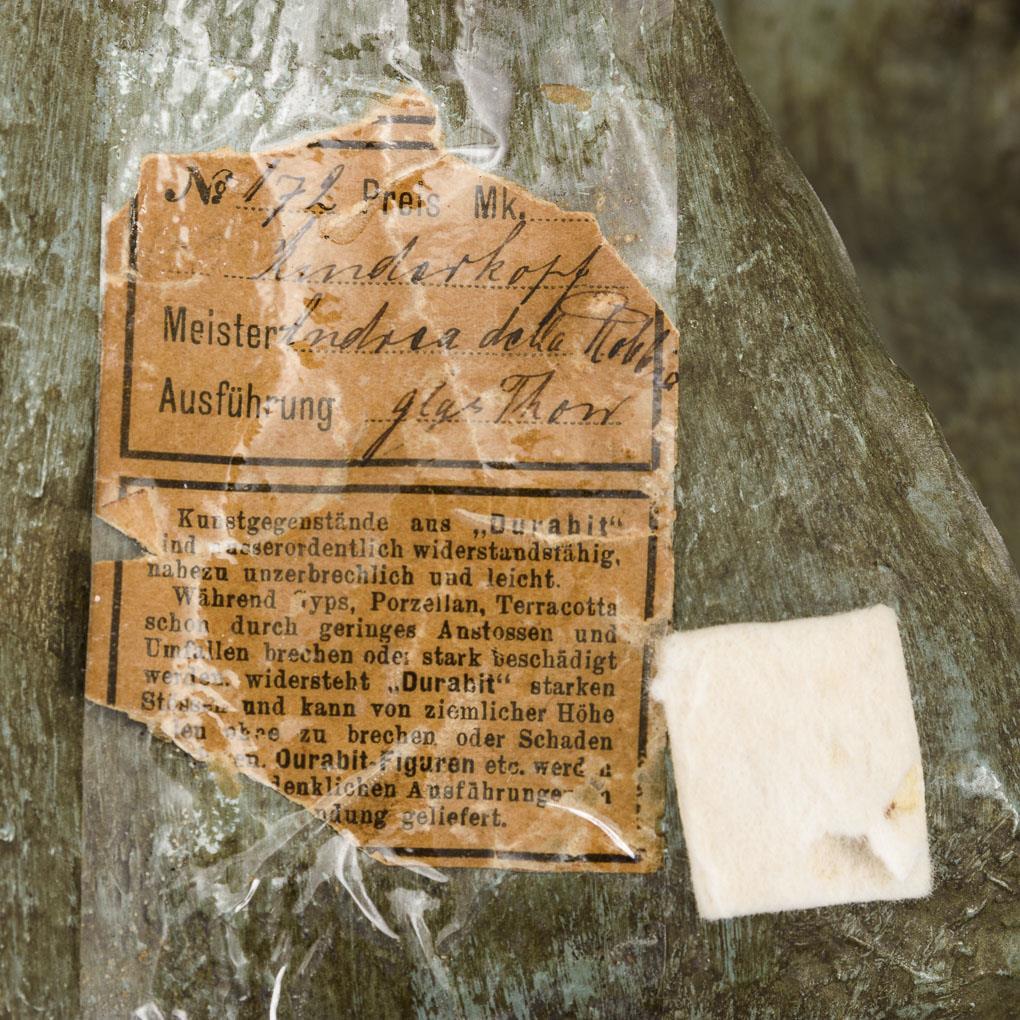 No 172 Preis Mk.
Kinderkopf
Meister Andrea della Robbia
Ausführung glas Thon
Kunstgegenstände aus „Durabit“
ind ausserordentlich widerstandsfähig,
nahezu unzerbrechlich und leicht.
Während Gyps, Porzellan, Terracotta
schon durch geringes Anstossen und
Umfallen brechen oder stark beschädigt
werden, widersteht „Durabit“ starken
Stössen und kann von ziemlicher Höhe
ohne zu brechen oder Schaden
Durabit-Figuren etc. werden
denklichen Ausführungen
ndung geliefert.